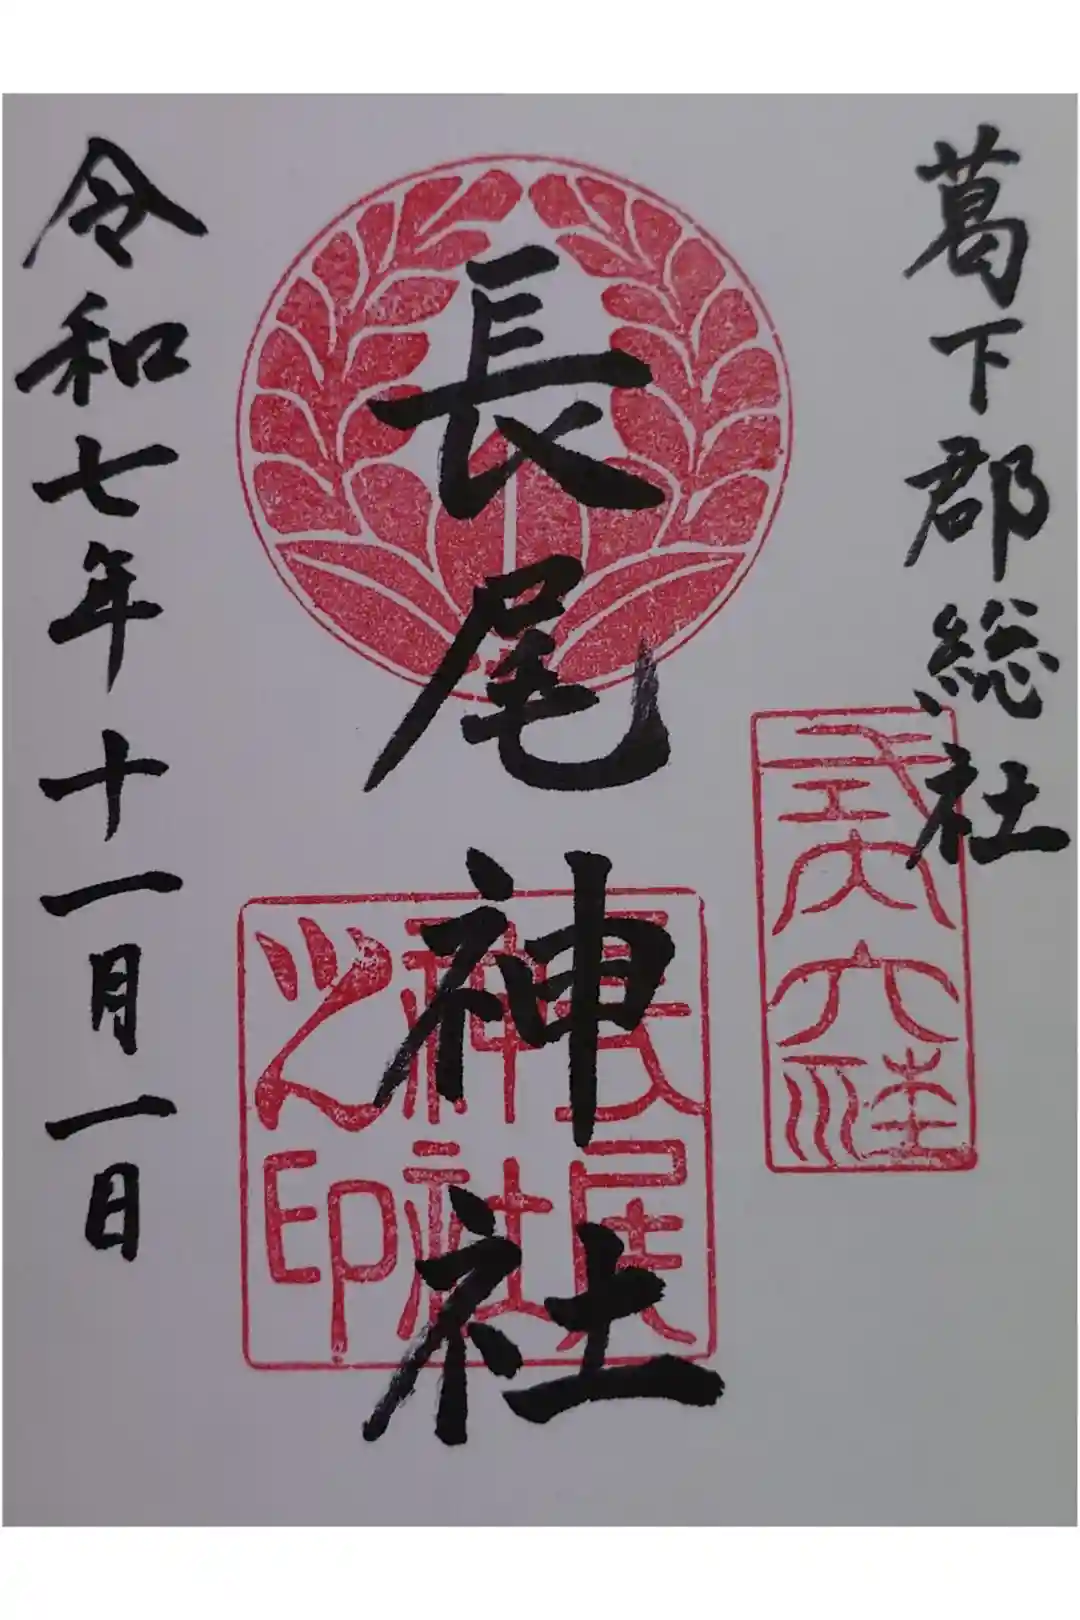 葛下郡総社
式内大社
長尾神社
長尾
神社
之印
令和七年十一月一日